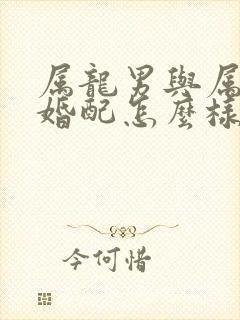 属龍男與属
婚配怎麼樣
今何惜